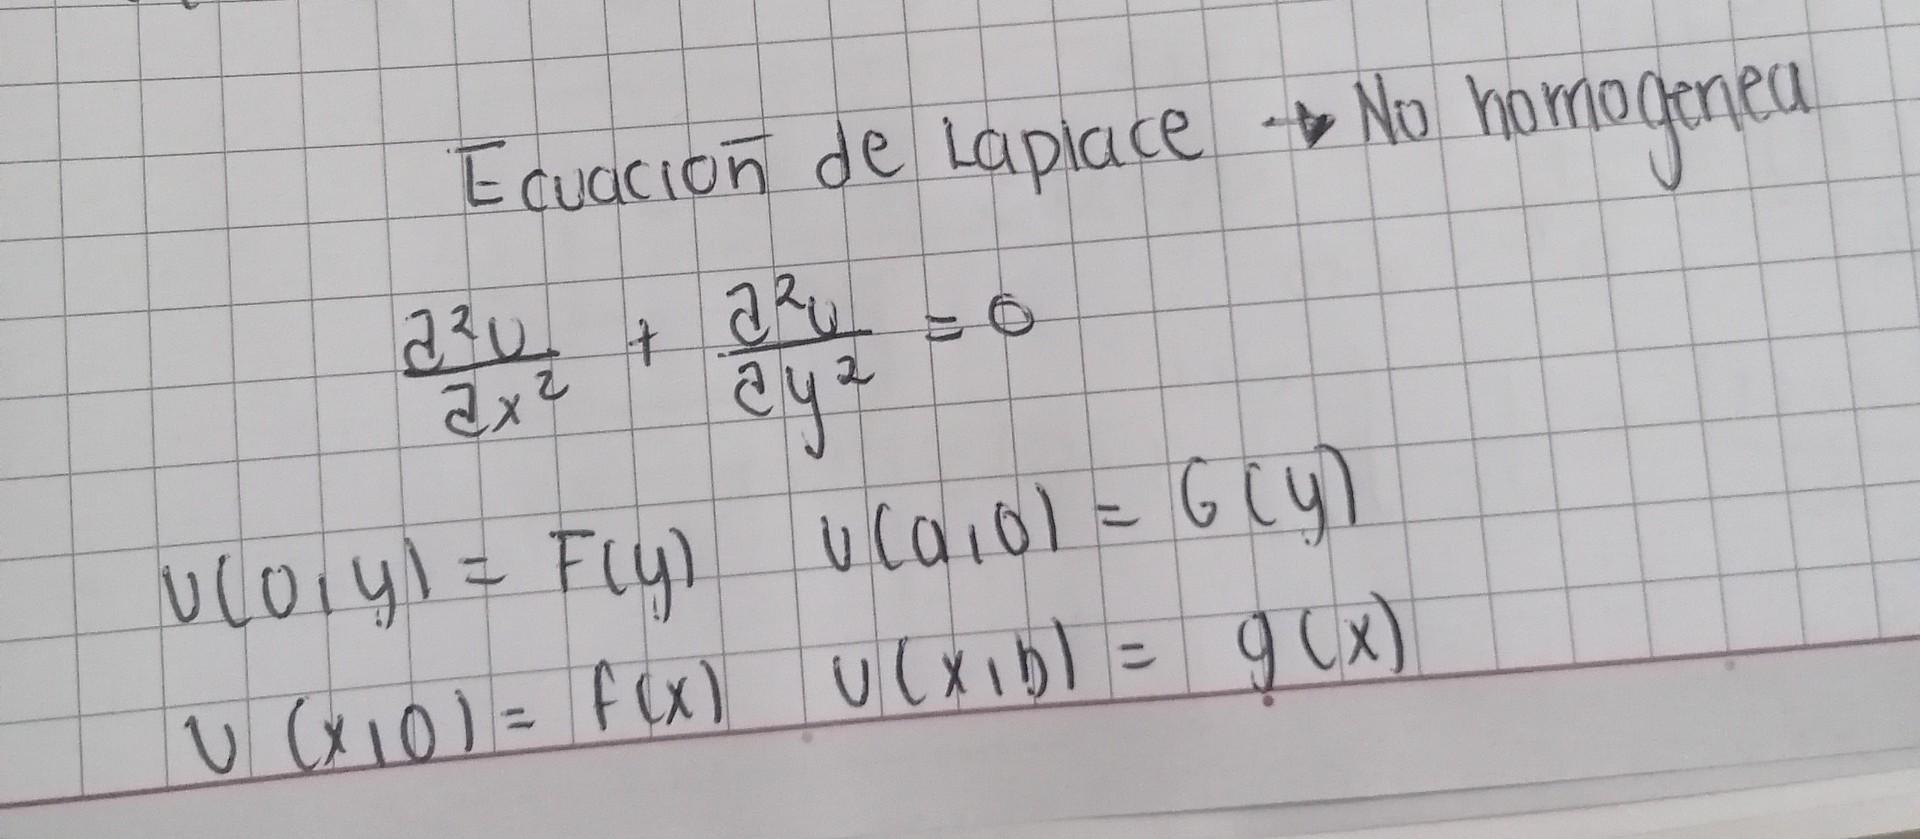 Ecuación de Laplace → No homogenea
∂²u/∂x² + ∂²u/∂y² = 0
u(0,y) = F(y) u(a,0) = G(y)
u(x,0) = f(x) u(x,b) = g(x)